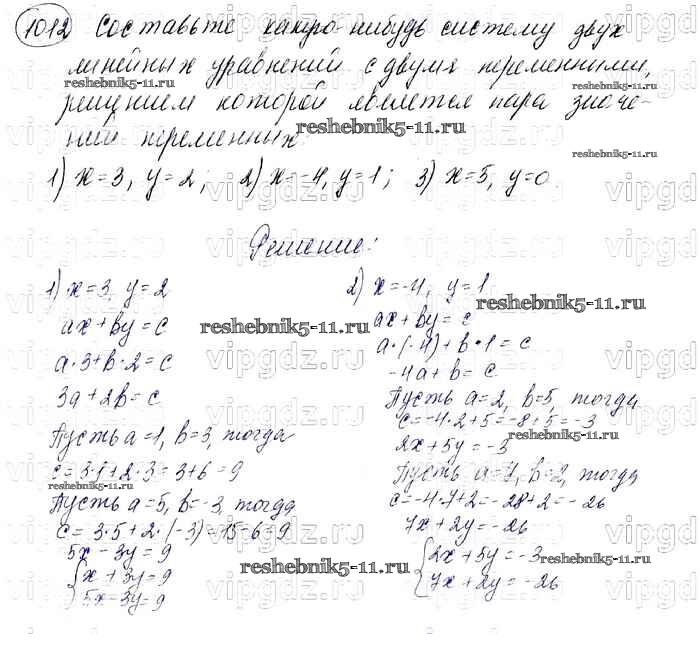 1012 Составьте какую-нибудь систему двух
линейных уравнений с двумя переменными,
решением которой является пара значе-
ний переменных:
1) x=3, y=2; 2) x=-4, y=1; 3) x=5, y=0.
Решение:
1) x=3, y=2
ax+by=c
a·3+b·2=c
3a+2b=c
Пусть a=1, b=3, тогда
c=3·1+2·3=3+6=9
Пусть a=5, b=-3, тогда
c=3·5+2·(-3)=15-6=9
5x-3y=9
{x+3y=9
5x-3y=9
2) x=-4, y=1
ax+by=c
a·(-4)+b·1=c
-4a+b=c
Пусть a=2, b=5, тогда
c=-4·2+5=-8+5=-3
2x+5y=-3
Пусть a=7, b=2, тогда
c=-4·7+2=-28+2=-26
7x+2y=-26
{2x+5y=-3
7x+2y=-26
reshebnik5-11.ru
reshebnik5-11.ru
reshebnik5-11.ru
reshebnik5-11.ru
reshebnik5-11.ru
reshebnik5-11.ru
reshebnik5-11.ru
reshebnik5-11.ru
reshebnik5-11.ru
reshebnik5-11.ru
vipgdz.ru